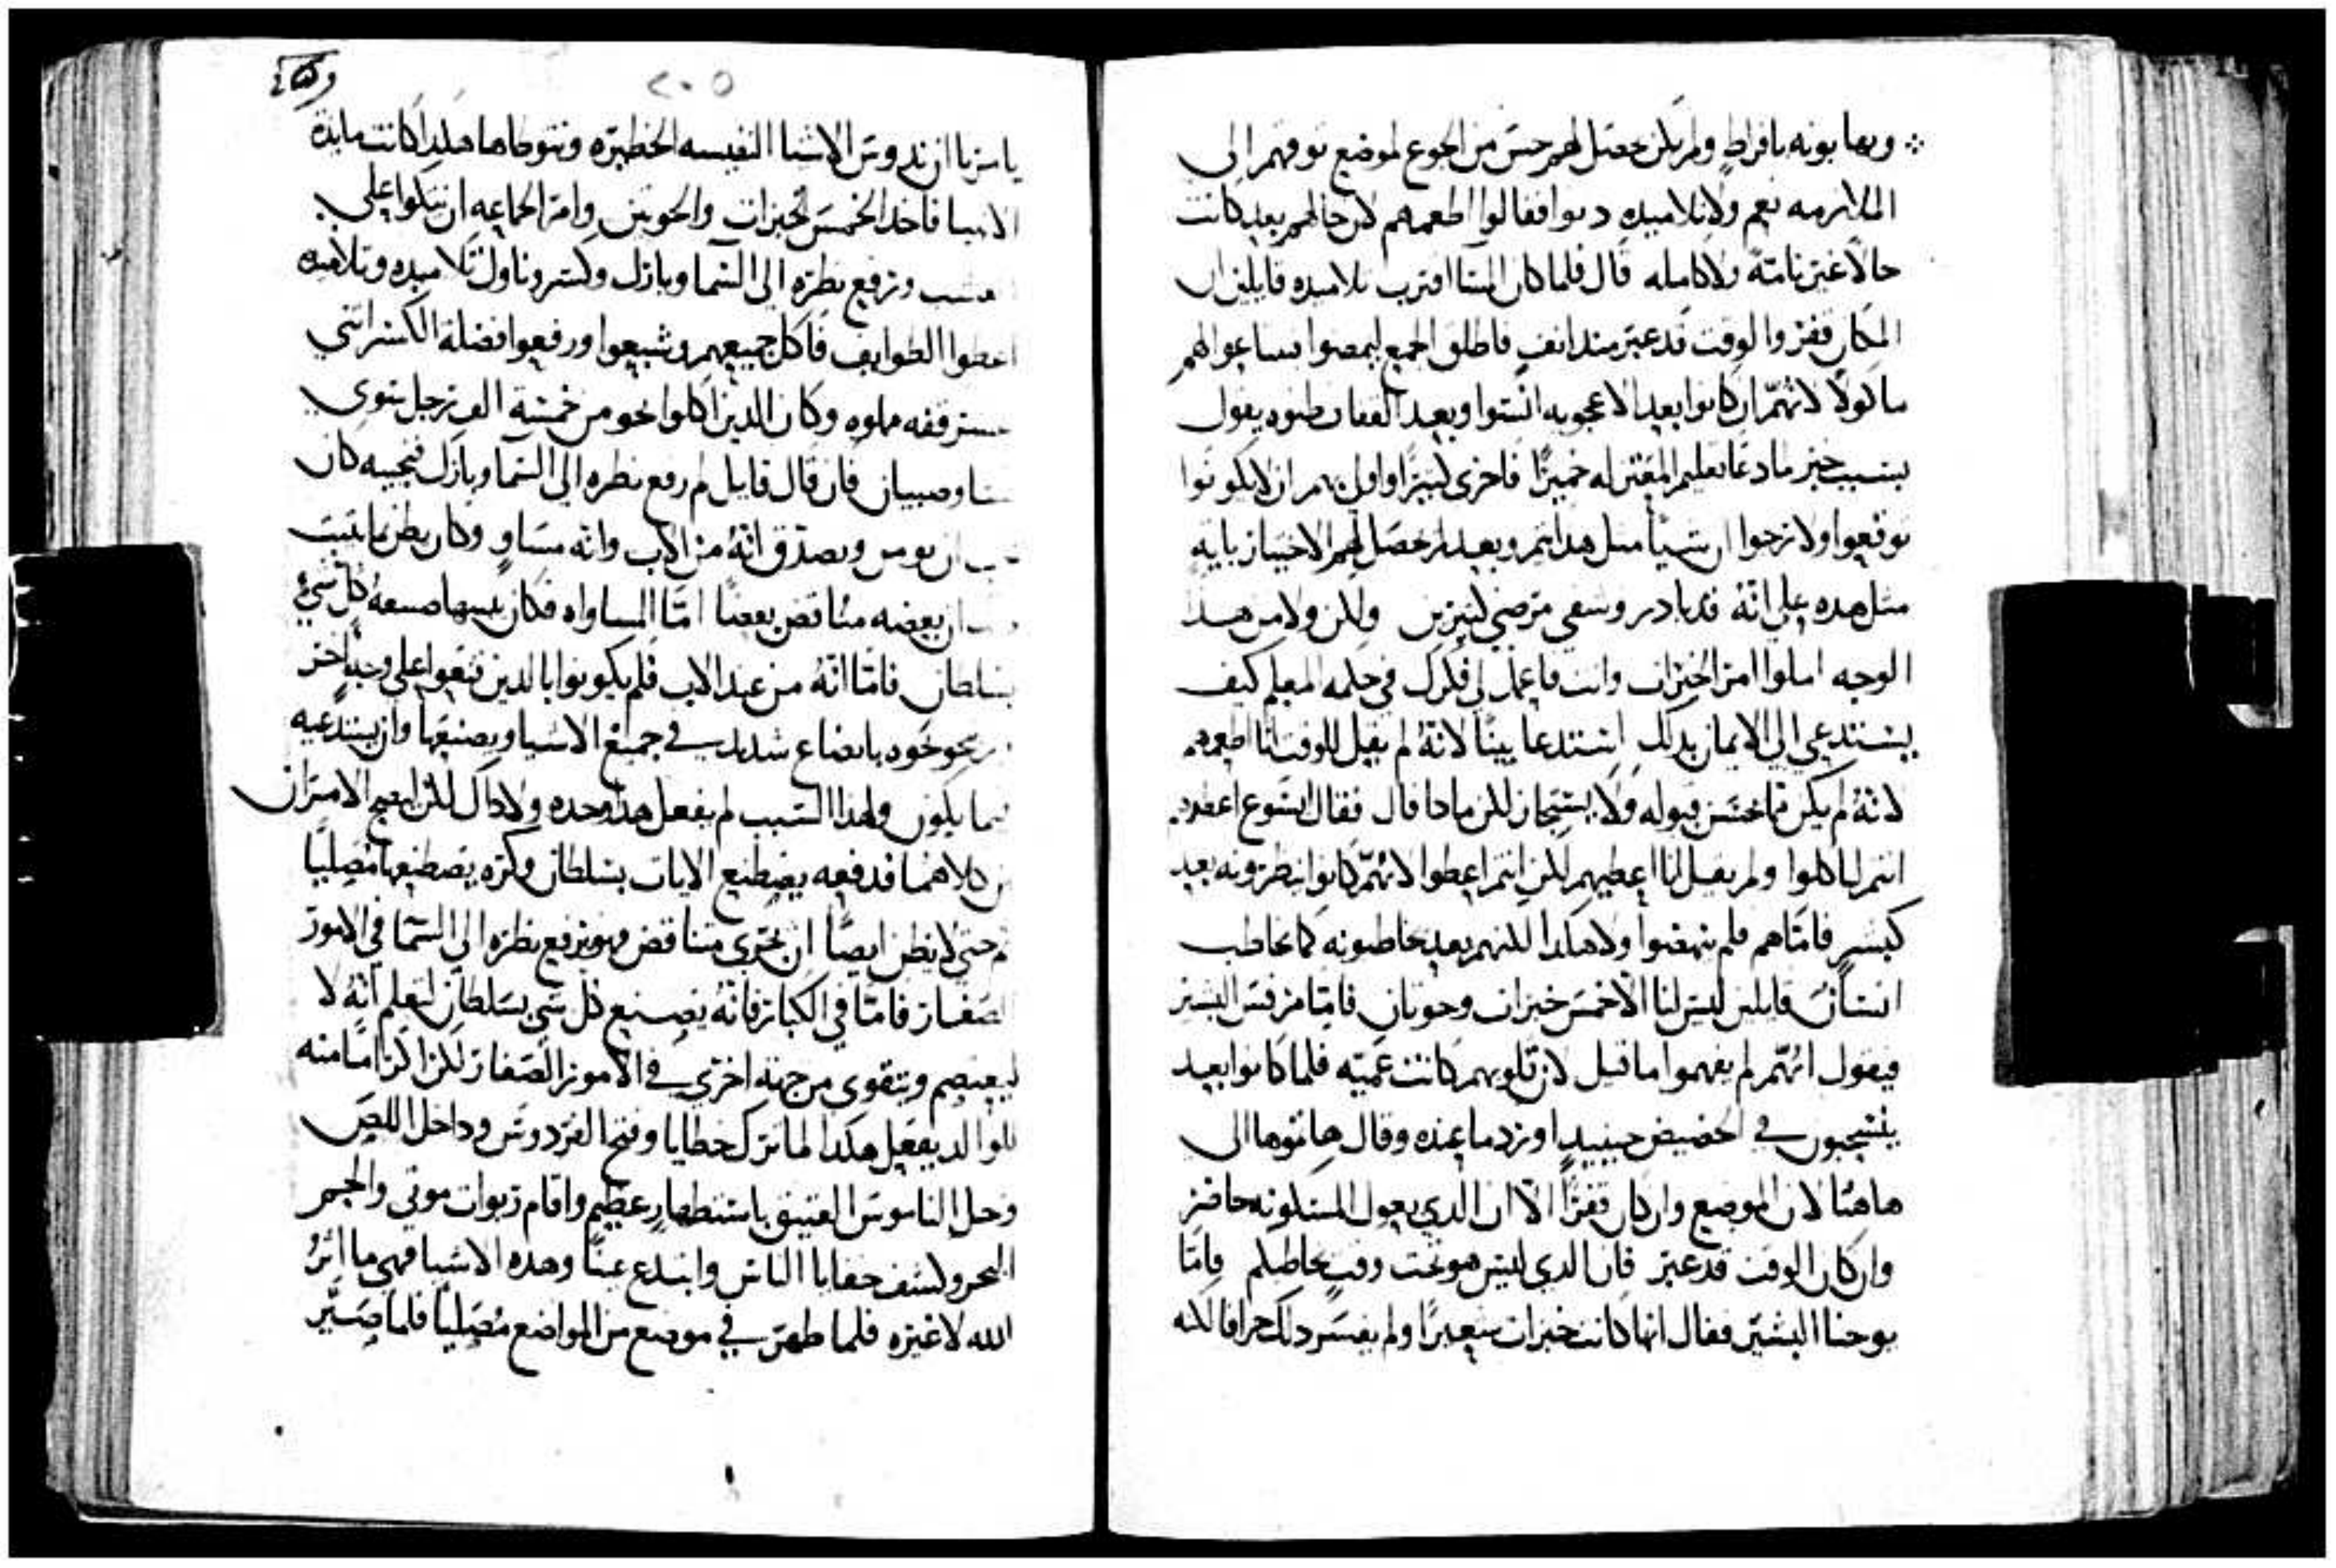 ويهابونه بافراط ولم يكن حصل لهم حس من الجوع لموضع توقهم الى
الملازمه نعم ولا تلاميذه دنوا فقالوا اطعمهم لان حالهم بعد كانت
حالا غير تامة ولا كامله قال فلما كان المسا اقترب تلاميده قايلين ان
المكان قفر والوقت قد عبر منذ انف فاطلق الجمع ليمضوا يبتاعوا لهم
ماكولا لانهم ان كانوا بعد الاعجوبه انستوا وبعد القفاف ظنوه يقول
بسبب خبز ما دعا تعليم المعتزله خميرا فاحرى كثيرا واولى بهم ان لا يكونوا
توقعوا ولا ترجوا ان شيا مثل هدا يتم وبعد لم حصل لهم الاختبار باية
مثل هده على انه قد بادر وشفى مرضي كثيرين ولكن ولا من هدا
الوجه املوا امر الخبزات وانت فاعمل لي فكرك في حكمه المعلم كيف
يستدعي الي الايمان بدلك استدعا بينا لانه لم يقل للوقت انا اطعمهم
لانه لم يكن مما حسن قبوله ولا يستجاز لكن ماذا قال فقال ايسوع اعطوهم
انتم لياكلوا ولم يقل انا اعطيهم لكن انتم اعطوا لانهم كانوا ينظرونه بعد
كبشر فاما هم فلم ينهضوا ولا هكدا لكنهم بعد يخاطبونه كما يخاطب
انسان قايلين ليس لنا الا خمس خبزات وحوتان فاما مرقس البشير
فيقول انهم لم يفهموا ما قيل لان قلوبهم كانت عميه فلما كانوا بعد
ينسحبون في الحضيض حينيد اورد ما عنده وقال هاتوها الى
هاهنا لان الموضع وان كان قفرا الا ان الدي يعول المسكونه حاضر
وان كان الوقت قد عبر فان الدي ليس هو تحت وقت يخاطبكم فاما
يوحنا البشير فقال انها كانت خبزات شعيرا ولم يفسر دلك جزافا لكنه
٢٠٥
يامرنا ان ندوس الاشيا النفيسه الخطيره ونتوطاها هكدا كانت مايدة
الانبيا فاخد الخمس الخبزات والحوتين وامر الجماعه ان يتكوا على
العشب ورفع نظره الى السما وبارك وكسر وناول تلاميده وتلاميده
اعطوا الطوايف فاكل جميعهم وشبعوا ورفعوا فضلة الكسر اثني
عشر قفه مملوه وكان الدين اكلوا نحو من خمسة الف رجل سوى
نسا وصبيان فان قال قايل لم رفع نظره الى السما وبارك فنجيبه كان
يجب ان يومن ويصدق انه من الاب وانه مساو وكان يظن ما يثبت
ان بعضه مناقض بعضا اما المساواه فكان يبينها صنعه كل شي
بسلطان فاما انه من عند الاب فلم يكونوا بالدين قنعوا على وجه اخر
نحوه باتضاع شديد في جميع الاشيا ويصنعها وان يستدعيه
فيما يكون ولهدا السبب لم يفعل هدا وحده ولا داك لكن ليصح الامران
كلاهما فدفعه يصطنع الايات بسلطان وكره يصطنعها مصليا
ثم حتى لا يظن ايضا ان يجري متناقض فهو يرفع نظره الى السما في الامور
الصغار فاما في الكبار فانه يصنع كل شي بسلطان لتعلم انه لا
ليعتصم ويتقوى من جهة اخري في الامور الصغار لكن اكراما منه
للوالد يفعل هكدا لما ترك خطايا وفتح الفردوس وداخل اللص
وحل الناموس العتيق باستظهار عظيم واقام ربوات موتي والجم
البحر وكشف خفايا الناس وابتدع عينا وهده الاشيا فهي ماثر
الله لا غيره فلما ظهر في موضع من المواضع مصليا فلما صير